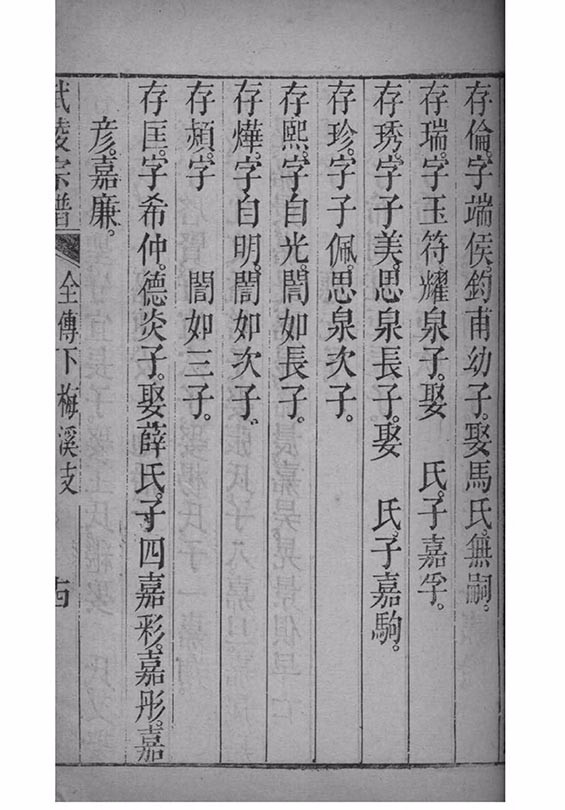 存倫。字端侯。鈞甫幼子。娶馬氏。無嗣。
存瑞。字玉符。耀泉子。娶　氏。子嘉孚。
存琇。字子美。思泉長子。娶　氏。子嘉駒。
存珍。字子佩。思泉次子。
存熙。字自光。誾如長子。
存燁。字自明。誾如次子。
存頫。字　誾如三子。
存匡。字希仲。德炎子。娶薛氏。子四嘉彩。嘉彤。嘉
彦。嘉廉。
武陵宗譜　全傳下梅溪支